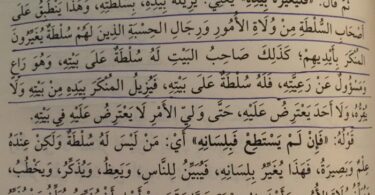 ثم قال: «فليغيره بيده» يعني: يزيله بيده، بسلطته، وهذا ينطبق على
أصحاب السُّلطة مِن وُلاةِ الأُمورِ ورِجالِ الحِسْبةِ الَّذين لهم سُلطةٌ يُغَيِّرُونَ
المُنكَر بِأَيْدِيهِم؛ كَذلِكَ صاحِبُ البَيْتِ لَهُ سُلطَةٌ عَلَى بَيْتِهِ، وَهُوَ رَاعٍ
وَمَسْؤُولٌ عَنْ رَعِيَّتِهِ، فَلَهُ سُلطَةٌ عَلَى بَيْتِهِ، فَيُزِيلُ المُنْكَرَ بِيَدِهِ مِنْ بَيْتِهِ وَلَا
يُقِرُّهُ، وَلَا أَحَدَ يَعْتَرِضُ عَلَيْهِ، حَتَّى وَلِيُّ الأَمْرِ لَا يَعْتَرِضُ عَلَيْهِ فِي بَيْتِهِ.
قَوْلُهُ: «فَإِنْ لَمْ يَسْتَطِعْ فَبِلِسَانِهِ» أَيْ: مَنْ لَيْسَ لَهُ سُلطَةٌ وَلَكِنْ عِنْدَهُ
عِلْمٌ وَبَصِيرَةٌ، فَهَذَا يُغَيِّرُ بِلِسَانِهِ، فَيُبَيِّنُ لِلنَّاسِ، وَيَعِظُ، وَيُذَكِّرُ، وَيَخْطُبُ،